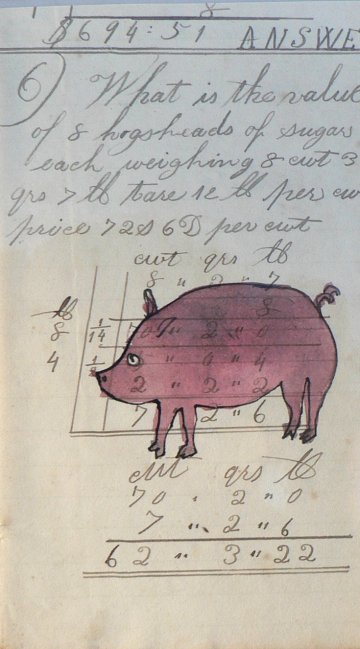 694:51 ANSWE
6) What is the value
of 8 hogsheads of sugar
each weighing 8 cwt 3
qrs 7 lb tare 12 lb per cw
price 72S 6D per cwt
cwt qrs lb
8 " " 7
8
lb
8 1/14 70 " 2 " 0
4 1/2 " 0 " 4
2 " 2 " 2
7 " 2 " 6
cwt qrs lb
70 " 2 " 0
7 " 2 " 6
62 " 3 " 22